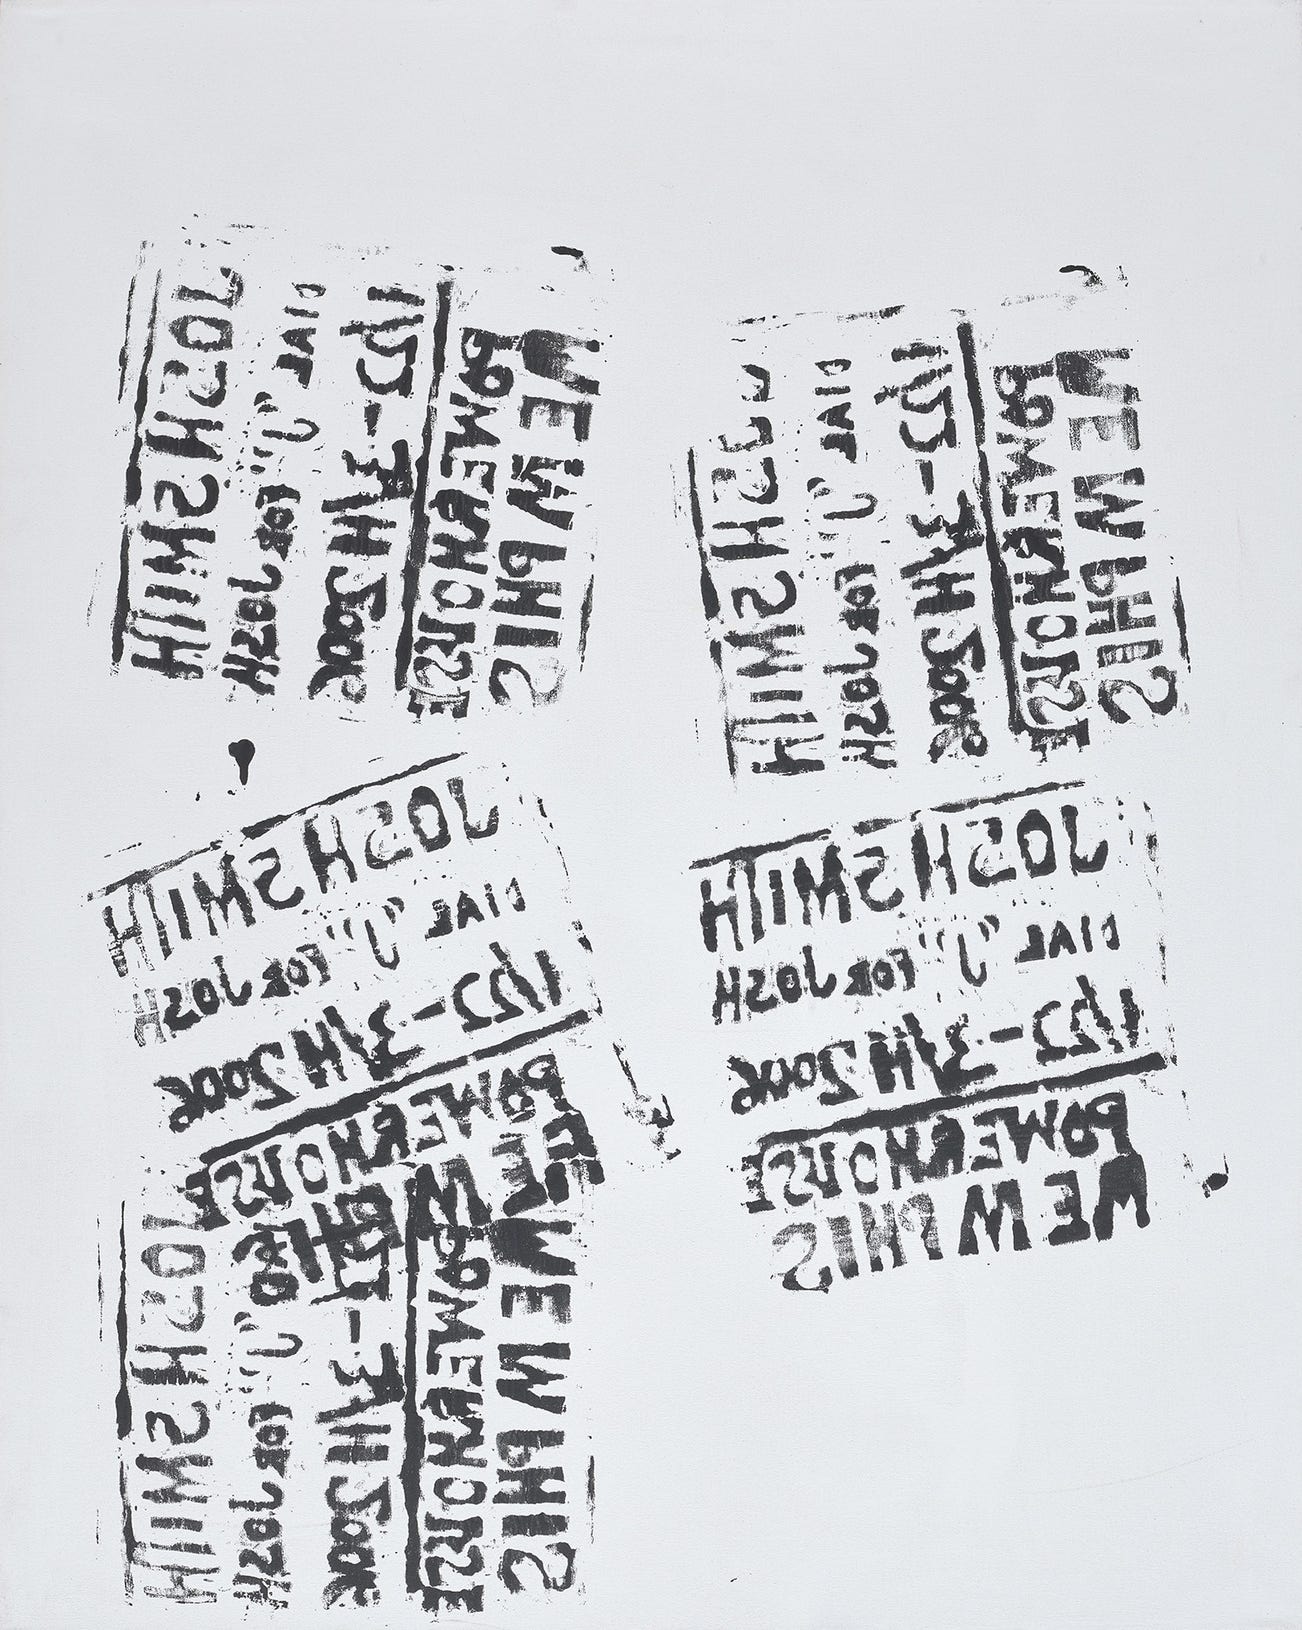 JOSH SMITH
DIAL "J" FOR JOSH
1/22-3/4 2006
POWERHOUSE
MEMPHIS
JOSH SMITH
DIAL "J" FOR JOSH
1/22-3/4 2006
POWERHOUSE
MEMPHIS
JOSH SMITH
DIAL "J" FOR JOSH
1/22-3/4 2006
POWERHOUSE
MEMPHIS
JOSH SMITH
DIAL "J" FOR JOSH
1/22-3/4 2006
POWERHOUSE
MEMPHIS
JOSH SMITH
"J" FOR JOSH
3/4 2006
POWERHOUSE
MEMPHIS